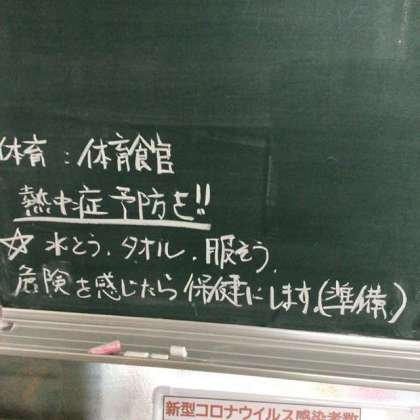 体育：体育館
熱中症予防を!!
☆ 水とう、タオル、服そう、
危険を感じたら保健にします。(準備)
新型コロナウイルス感染者数